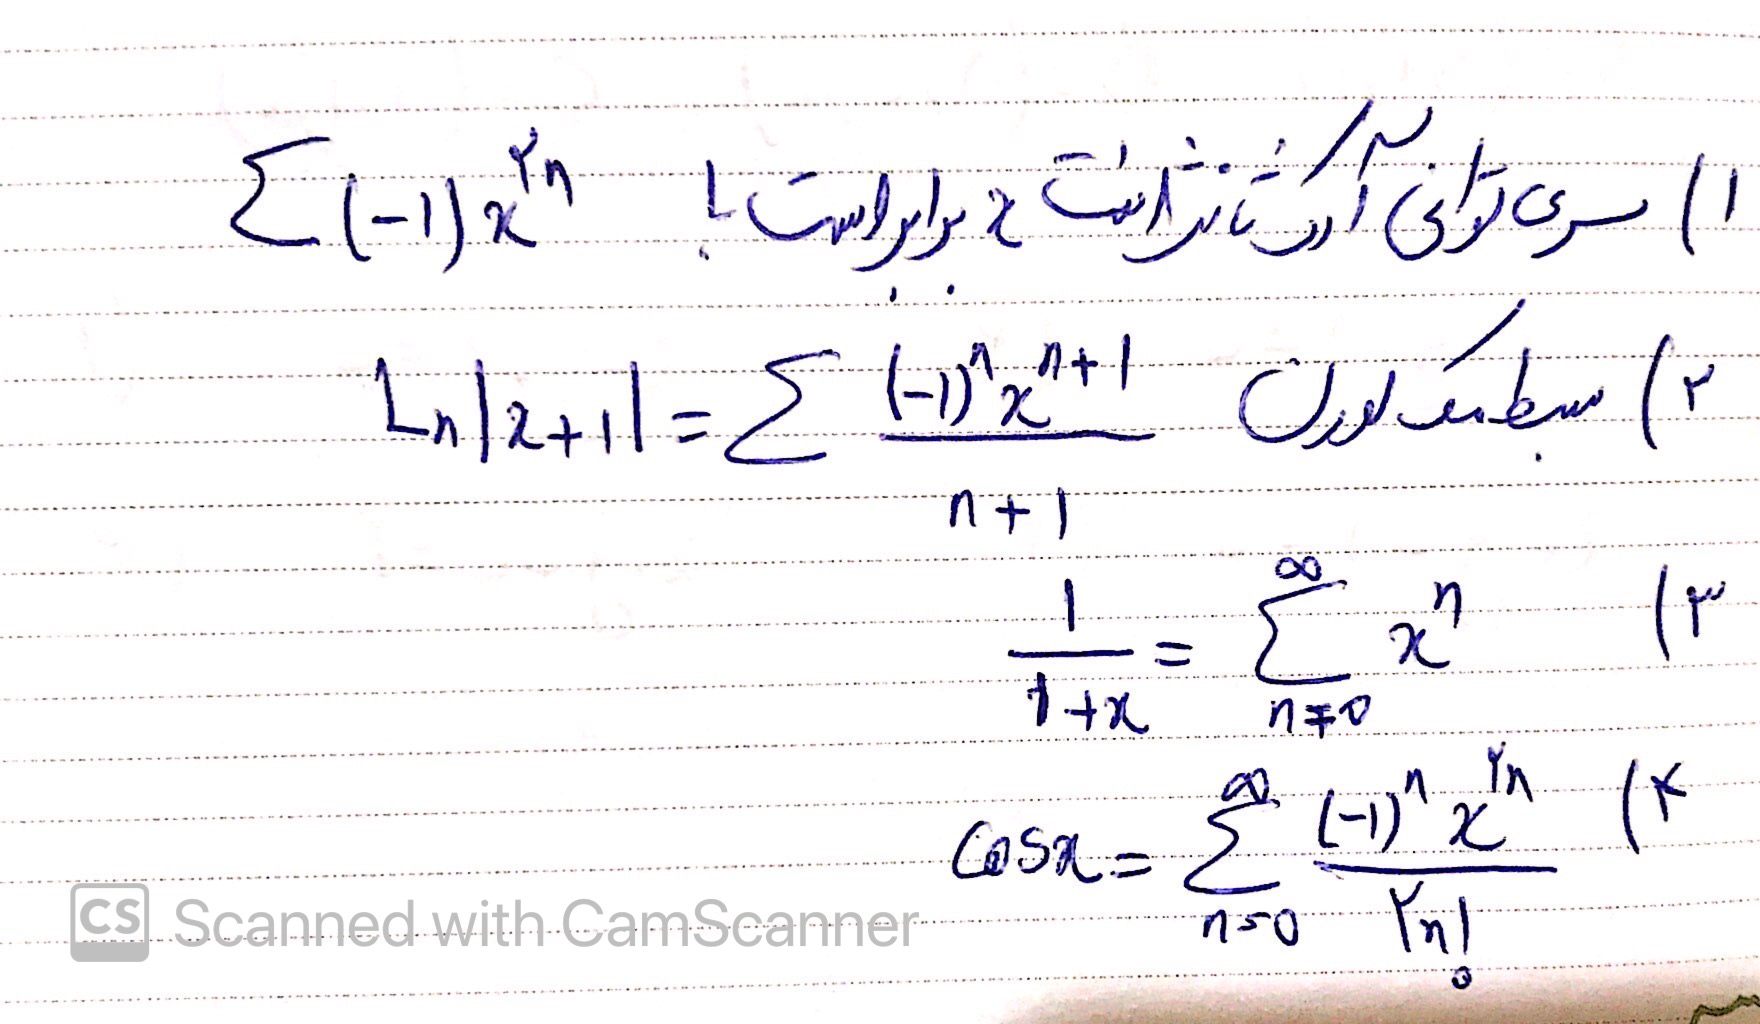 ۱) سری توانی آرک تانژانت x برابر است با Σ (-1) x^۲n
۲) بسط مک لورن Ln|x+1| = Σ (-1)^n x^n+1 / n+1
۳) 1/1+x = Σ n=0 ∞ x^n
۴) Cosx = Σ n=0 ∞ (-1)^n x^۲n / ۲n!
CS Scanned with CamScanner